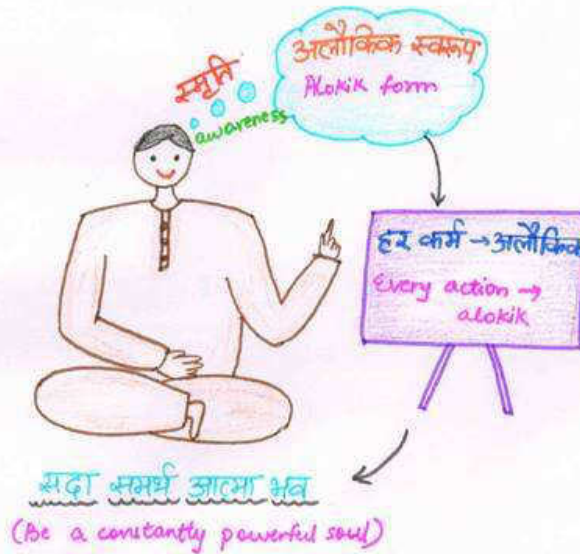 स्मृति
awareness
अलौकिक स्वरूप
Alokik form
हर कर्म → अलौकिक
Every action →
alokik
सदा समर्थ आत्मा भव
(Be a constantly powerful soul)